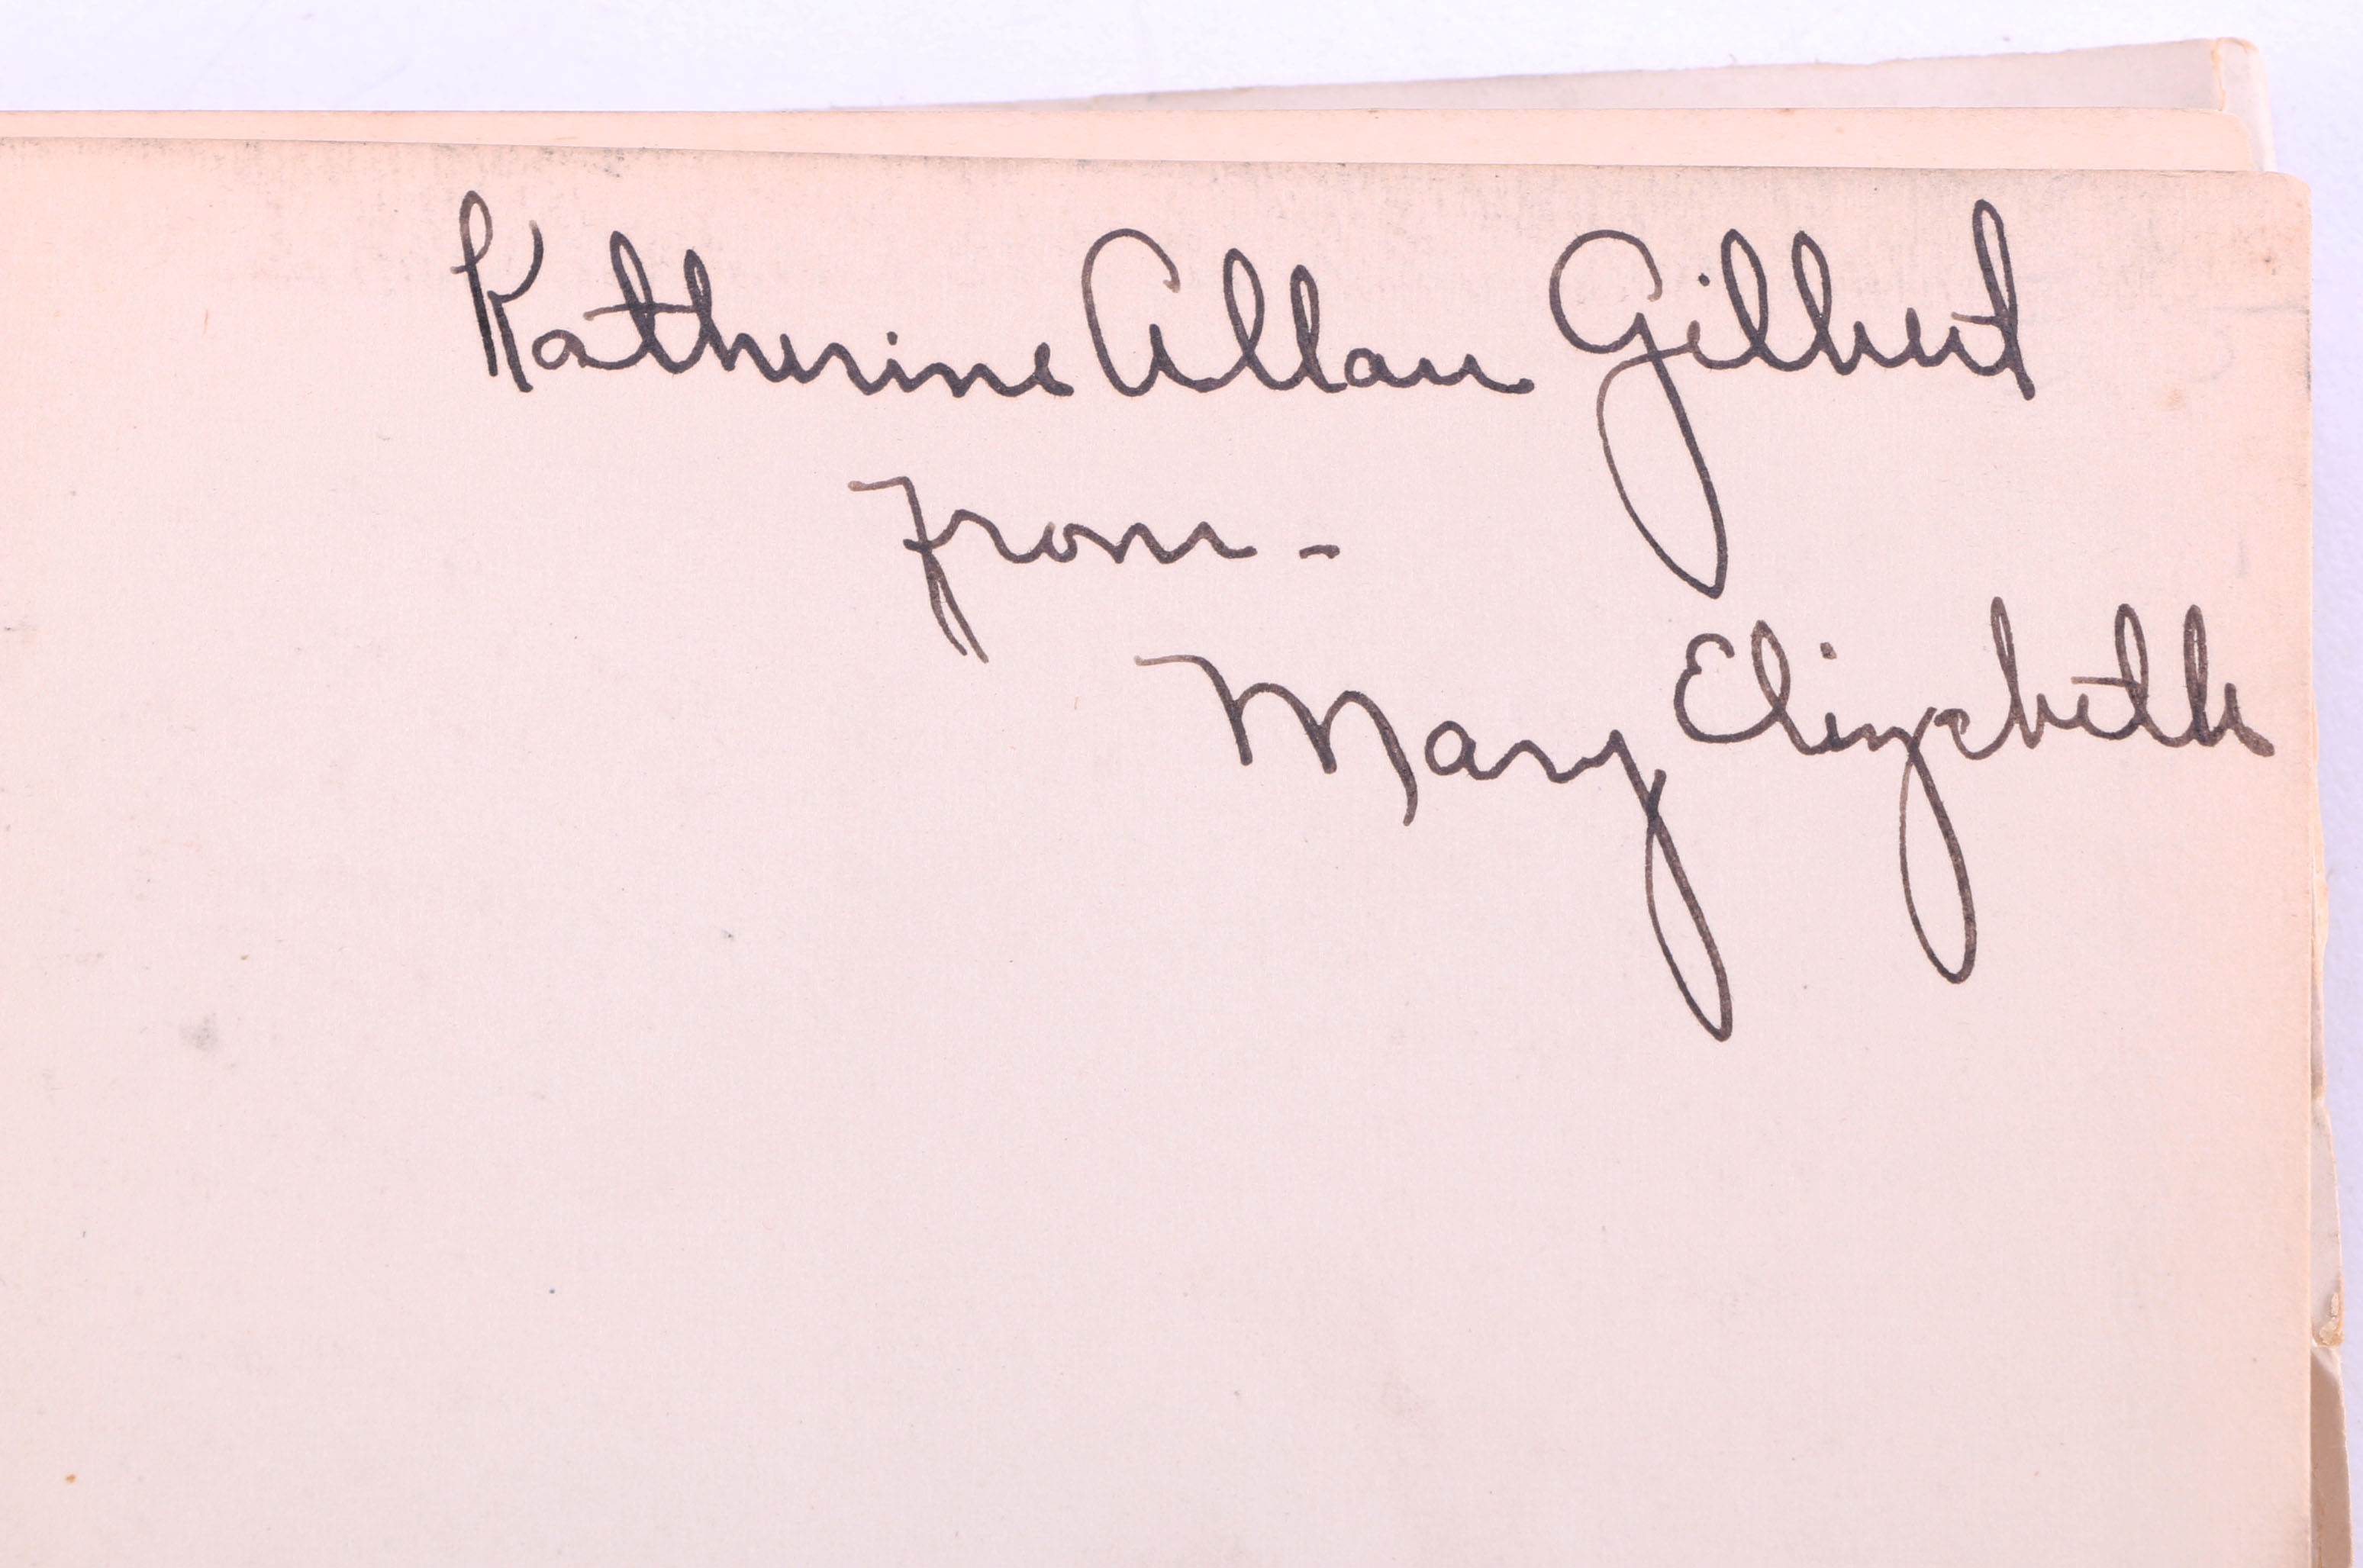 Katherine Allan Gilbert
From -
Mary Elizabeth